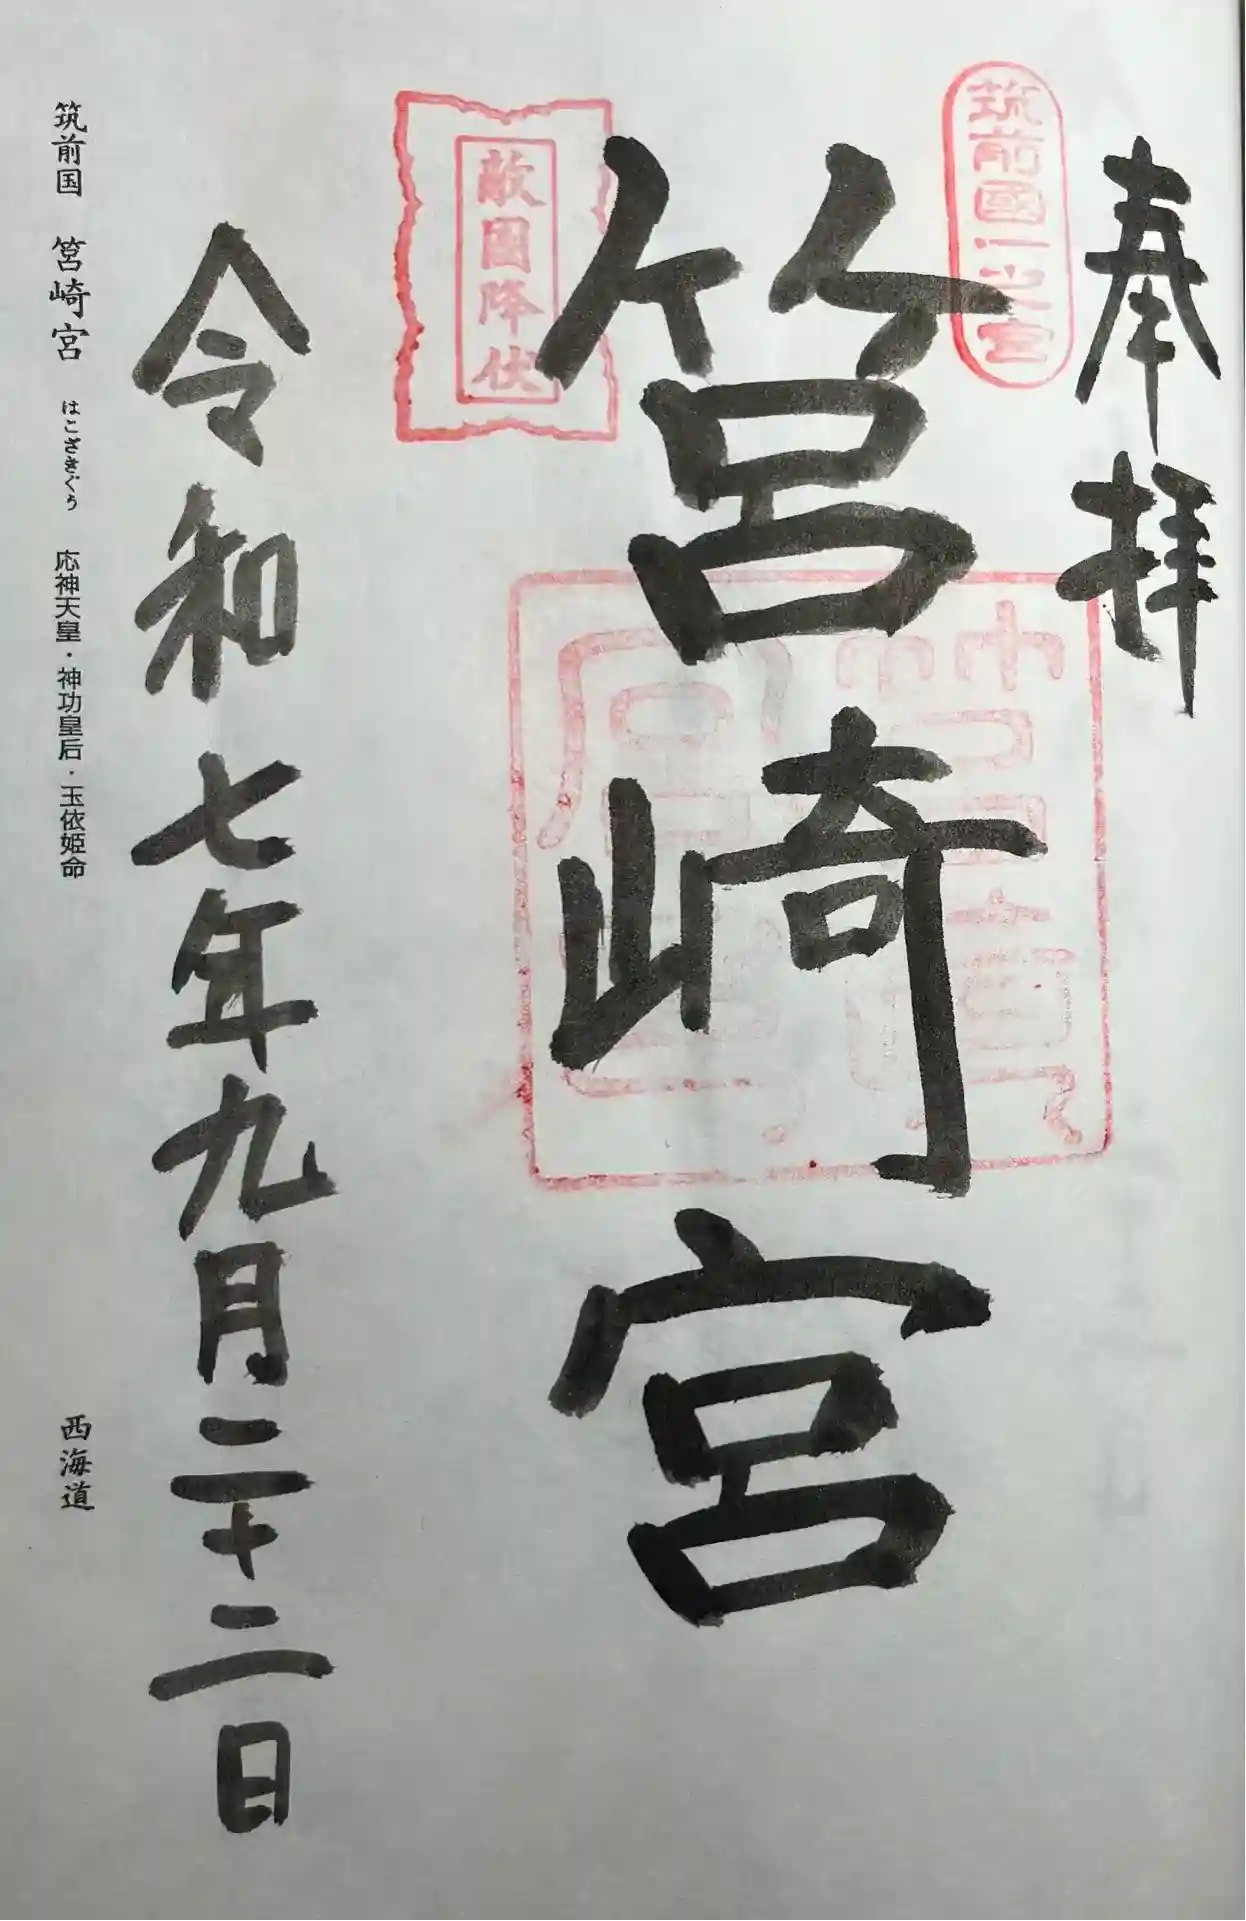 奉拝
筑前國一之宮
筥崎宮
敵國降伏
令和七年九月二十二日
筑前国 筥崎宮 はこざきぐう 応神天皇・神功皇后・玉依姫命 西海道